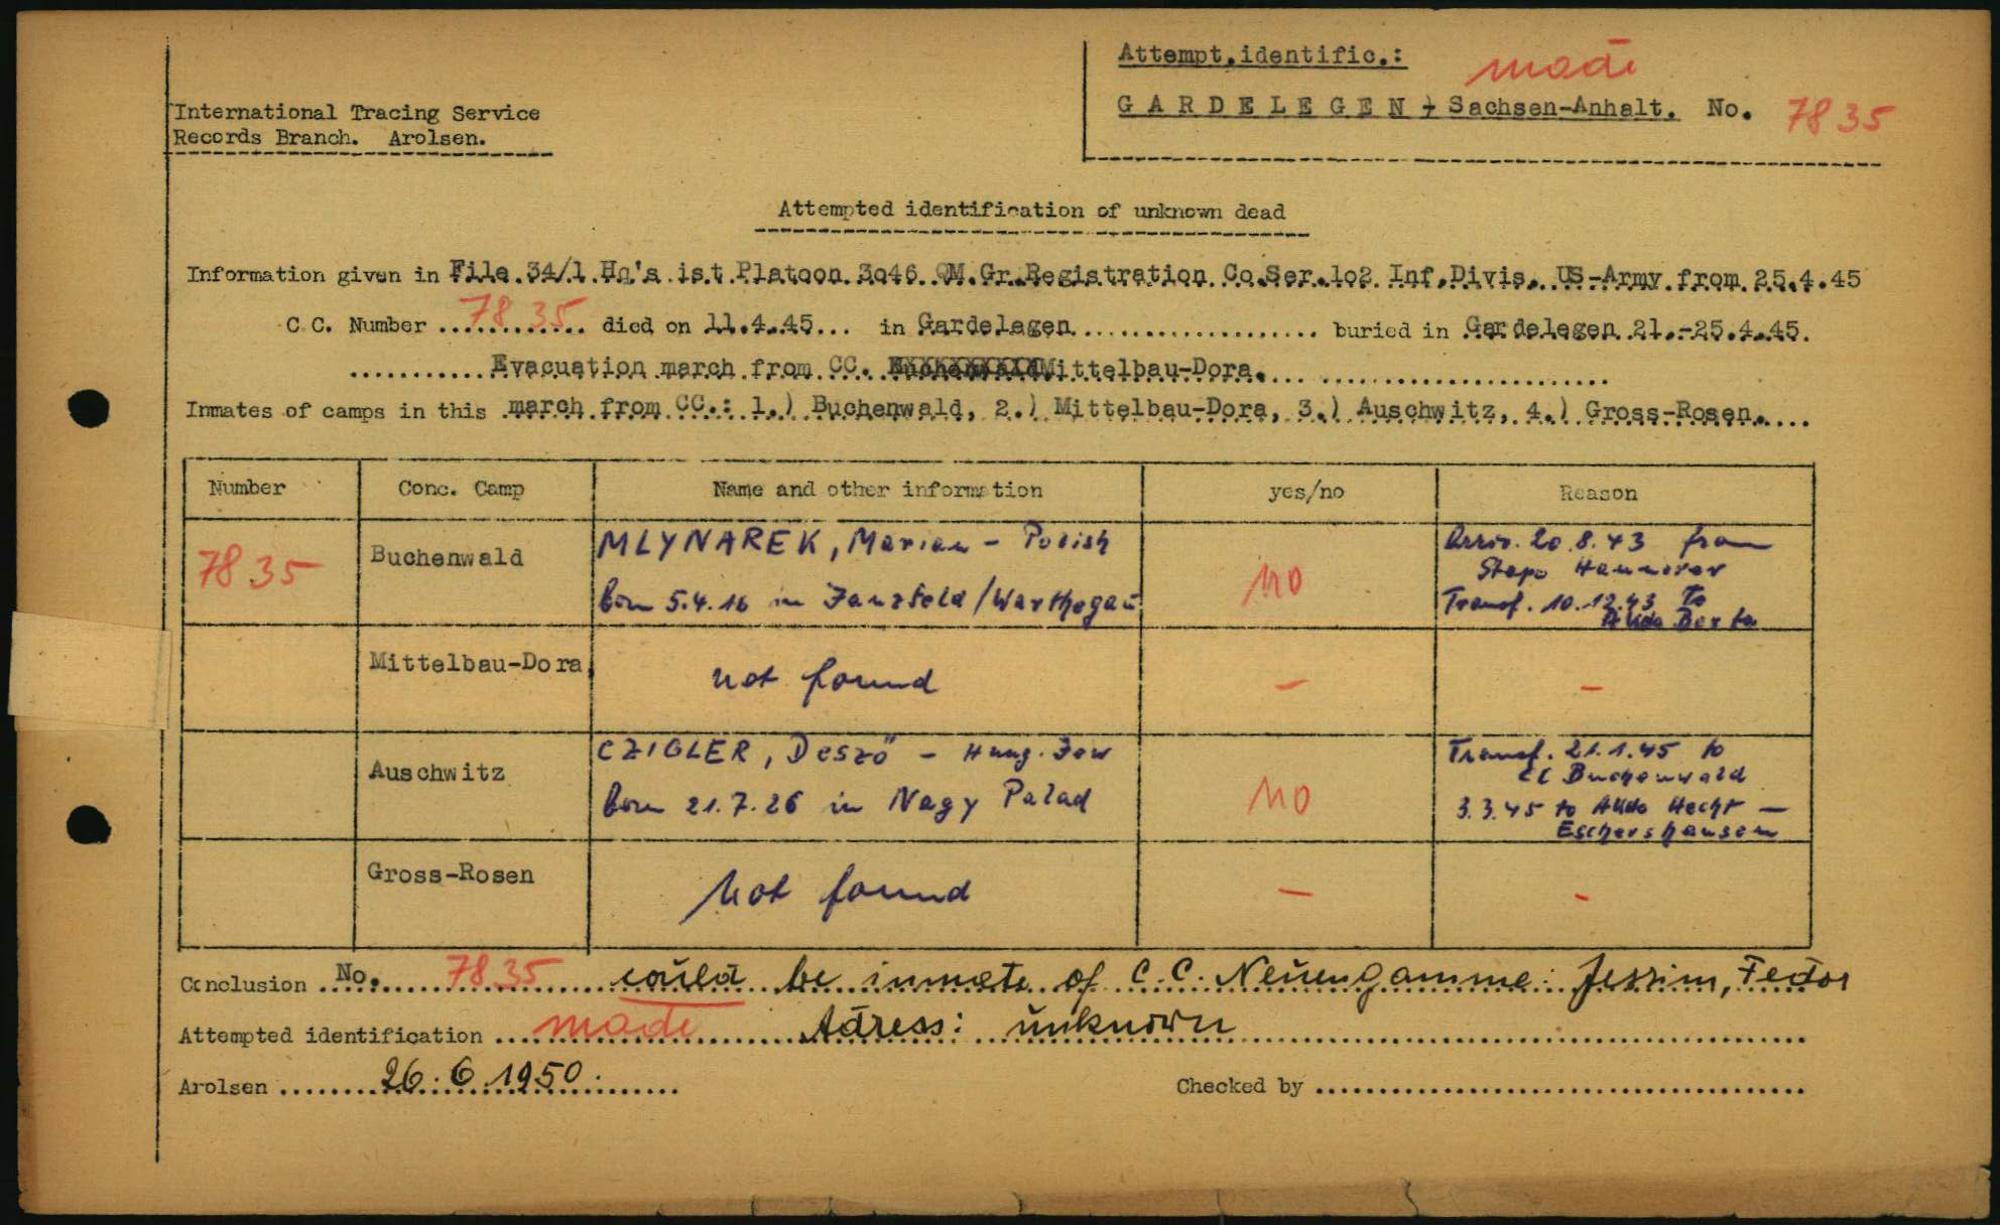 Attempt.identific.: made
GARDELEGEN, Sachsen-Anhalt. No. 7835
International Tracing Service
Records Branch. Arolsen.
Attempted identification of unknown dead
Information given in File 34/1 Hq's ist Platoon 3o46 QM.Gr.Registration Co.Ser.1o2 Inf.Divis. US-Army from 25.4.45
C.C. Number 7835 died on 11.4.45... in Gardelagen buried in Gardelegen 21.-25.4.45.
Evacuation march from CC. Mittelbau-Dora.
Inmates of camps in this march from CC.: 1.) Buchenwald, 2.) Mittelbau-Dora, 3.) Auschwitz, 4.) Gross-Rosen.
Number Conc. Camp Name and other information yes/no Reason
7835 Buchenwald MLYNAREK, Marian - Polish no Arriv. 20.8.43 from
Stapo Hannover
born 5.4.16 in /Warthegau Transf. 10.12.43 to
AKdo Berta
Mittelbau-Dora, not found - -
Auschwitz CZIGLER, Deszö - Hung. Jew no Transf. 21.1.45 to
CC Buchenwald
born 21.7.26 in Nagy Palad 3.3.45 to AKdo Hecht -
Eschershausen
Gross-Rosen Not found - -
Conclusion No. 7835 could be inmate of C.C. Neuengamme: Jessim, Fedor
Attempted identification made Adress: unknown
Arolsen 26.6.1950. Checked by